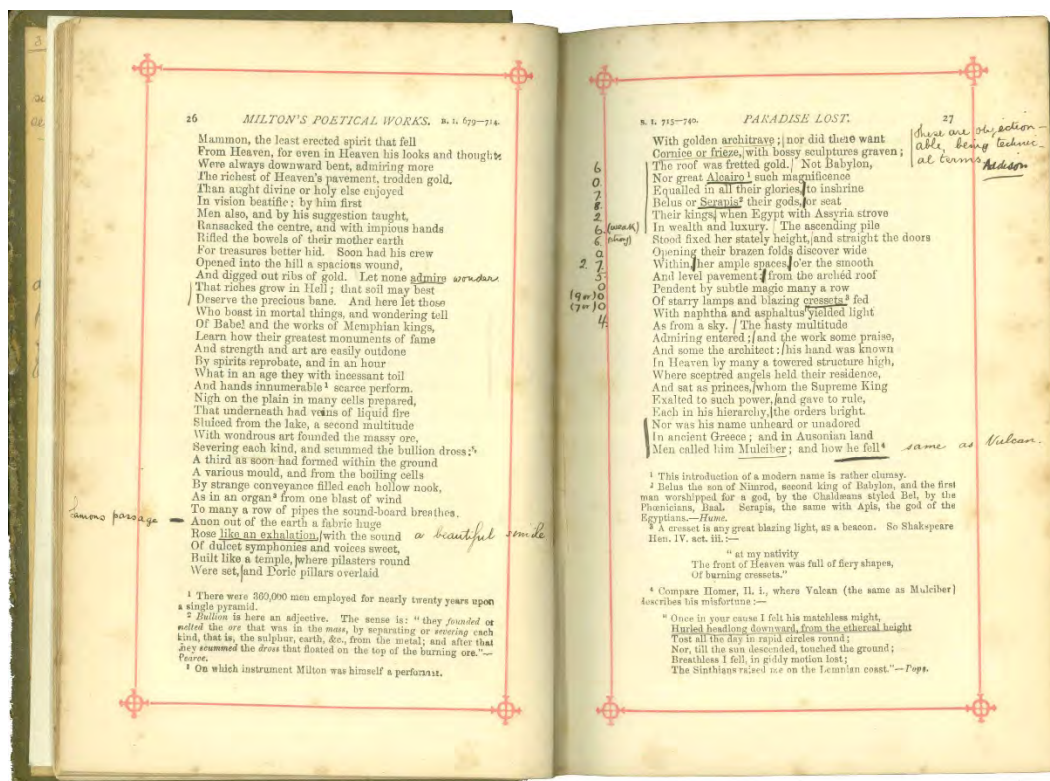 26 MILTON'S POETICAL WORKS. B. I. 679—714.
Mammon, the least erected spirit that fell
From Heaven, for even in Heaven his looks and thoughts
Were always downward bent, admiring more
The riches of Heaven's pavement, trodden gold,
Than aught divine or holy else enjoyed
In vision beatific: by him first
Men also, and by his suggestion taught,
Ransacked the centre, and with impious hands
Rifled the bowels of their mother earth
For treasures better hid. Soon had his crew
Opened into the hill a spacious wound,
And digged out ribs of gold. Let none admire wonder
That riches grow in Hell; that soil may best
Deserve the precious bane. And here let those
Who boast in mortal things, and wondering tell
Of Babel and the works of Memphian kings,
Learn how their greatest monuments of fame
And strength and art are easily outdone
By spirits reprobate, and in an hour
What in an age they with incessant toil
And hands innumerable¹ scarce perform.
Nigh on the plain in many cells prepared,
That underneath had veins of liquid fire
Sluiced from the lake, a second multitude
With wondrous art founded the massy ore,
Severing each kind, and scummed the bullion dross;²
A third as soon had formed within the ground
A various mould, and from the boiling cells
By strange conveyance filled each hollow nook,
As in an organ³ from one blast of wind
To many a row of pipes the sound-board breathes.
famous passage Anon out of the earth a fabric huge
Rose like an exhalation, with the sound a beautiful simile
Of dulcet symphonies and voices sweet,
Built like a temple, where pilasters round
Were set, and Doric pillars overlaid
¹ There were 360,000 men employed for nearly twenty years upon
a single pyramid.
² Bullion is here an adjective. The sense is: "they founded or
melted the ore that was in the mass, by separating or severing each
kind, that is, the sulphur, earth, &c., from the metal; and after that
they scummed the dross that floated on the top of the burning ore."—
Pearce.
³ On which instrument Milton was himself a performer.
B. I. 715—740. PARADISE LOST. 27
With golden architrave; nor did there want
Cornice or frieze, with bossy sculptures graven;
The roof was fretted gold. Not Babylon,
Nor great Alcairo¹ such magnificence
Equalled in all their glories, to inshrine
Belus or Serapis² their gods, or seat
Their kings, when Egypt with Assyria strove
In wealth and luxury. The ascending pile
Stood fixed her stately height, and straight the doors
Opening their brazen folds discover wide
Within, her ample spaces, o'er the smooth
And level pavement: from the archéd roof
Pendent by subtle magic many a row
Of starry lamps and blazing cressets³ fed
With naphtha and asphaltus yielded light
As from a sky. The hasty multitude
Admiring entered; and the work some praise,
And some the architect: his hand was known
In Heaven by many a towered structure high,
Where sceptred angels held their residence,
And sat as princes, whom the Supreme King
Exalted to such power, and gave to rule,
Each in his hierarchy, the orders bright.
Nor was his name unheard or unadored
In ancient Greece; and in Ausonian land
Men called him Mulciber; and how he fell⁴ same as Vulcan.
These are objection-
able, being technic-
al terms Addison
6
0.
7.
8.
2.
6. (weak)
6. (strong)
0
2. 7.
5.
0
(9 or) 0
(7 or) 0
4.
¹ This introduction of a modern name is rather clumsy.
² Belus the son of Nimrod, second king of Babylon, and the first
man worshipped for a god, by the Chaldæans styled Bel, by the
Phœnicians, Baal. Serapis, the same with Apis, the god of the
Egyptians.—Hume.
³ A cresset is any great blazing light, as a beacon. So Shakspeare
Hen. IV. act. iii.:—
"at my nativity
The front of Heaven was full of fiery shapes,
Of burning cressets."
⁴ Compare Homer, Il. i., where Vulcan (the same as Mulciber)
describes his misfortune:—
"Once in your cause I felt his matchless might,
Hurled headlong downward, from the ethereal height
Tost all the day in rapid circles round;
Nor, till the sun descended, touched the ground;
Breathless I fell, in giddy motion lost;
The Sinthians raised me on the Lemnian coast."—Pope.